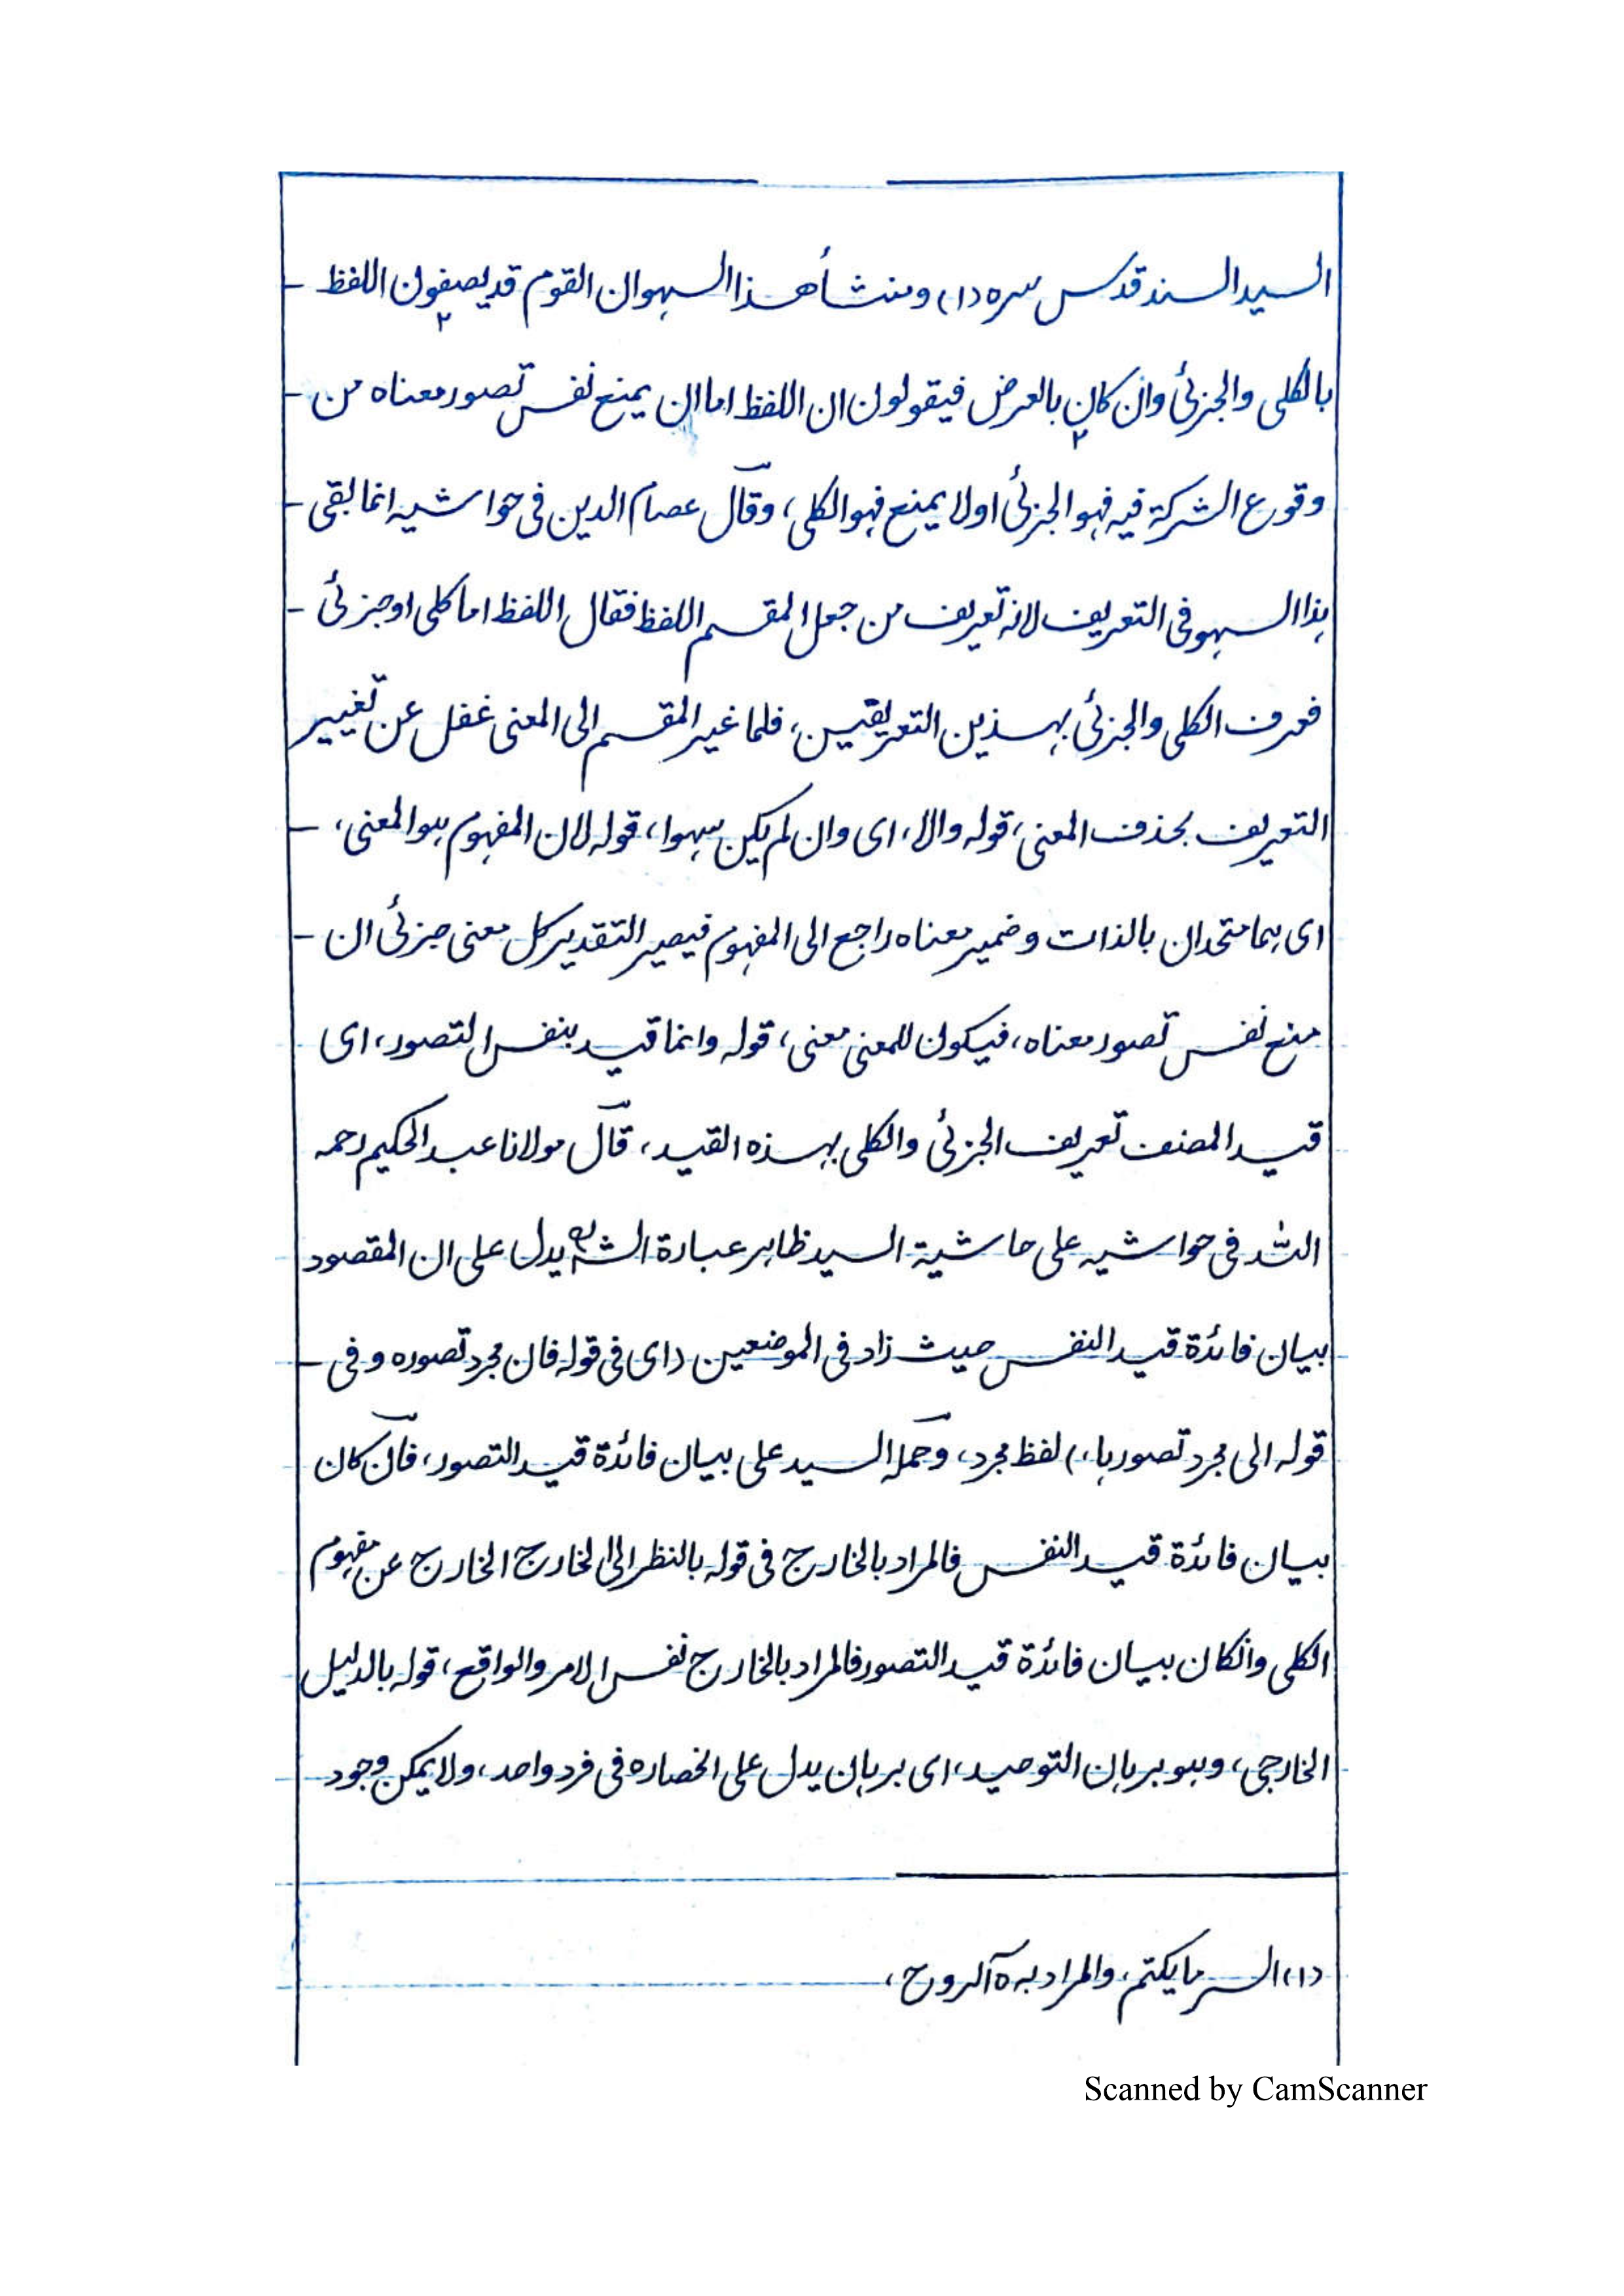 السيد السند قدس سره (١) ومنشأ هذا السهو ان القوم قد يصفون اللفظ
بالكلى والجزئى وان كان بالعرض فيقولون ان اللفظ اما ان يمنع نفس تصور معناه من
وقوع الشركة فيه فهو الجزئى او لا يمنع فهو الكلى، وقال عصام الدين فى حواشيه انما بقى
هذا السهو فى التعريف لانه تعريف من جعل المقسم اللفظ فقال اللفظ اما كلى او جزئى
فعرف الكلى والجزئى بهذين التعريفين، فلما غير المقسم الى المعنى غفل عن تغيير
التعريف بحذف المعنى، قوله والا، اى وان لم يكن سهوا، قوله لان المفهوم هو المعنى،
اى هما متحدان بالذات وضمير معناه راجع الى المفهوم فيصير التقدير كل معنى جزئى ان
منع نفس تصور معناه، فيكون للمعنى معنى، قوله وانما قيد بنفس التصور، اى
قيد المصنف تعريف الجزئى والكلى بهذه القيد، قال مولانا عبد الحكيم رحمه
الله فى حواشيه على حاشية السيد ظاهر عبارة الشارح يدل على ان المقصود
بيان فائدة قيد النفس حيث زاد فى الموضعين (اى فى قوله فان مجرد تصوره و فى
قوله الى مجرد تصورها،) لفظ مجرد، وحمله السيد على بيان فائدة قيد التصور، فان كان
بيان فائدة قيد النفس فالمراد بالخارج فى قوله بالنظر الى الخارج الخارج عن مفهوم
الكلى وان كان بيان فائدة قيد التصور فالمراد بالخارج نفس الامر والواقع، قوله بالدليل
الخارجى، وهو برهان التوحيد، اى برهان يدل على انحصاره فى فرد واحد، ولا يمكن وجود
(١) السر ما يكتم، والمراد به الروح،
Scanned by CamScanner